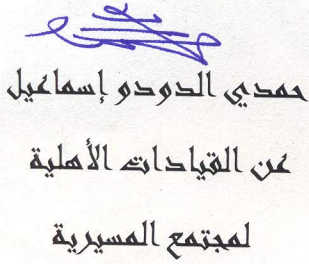 حمدي الدودو إسماعيل
عن القيادات الأهلية
لمجتمع المسيرية